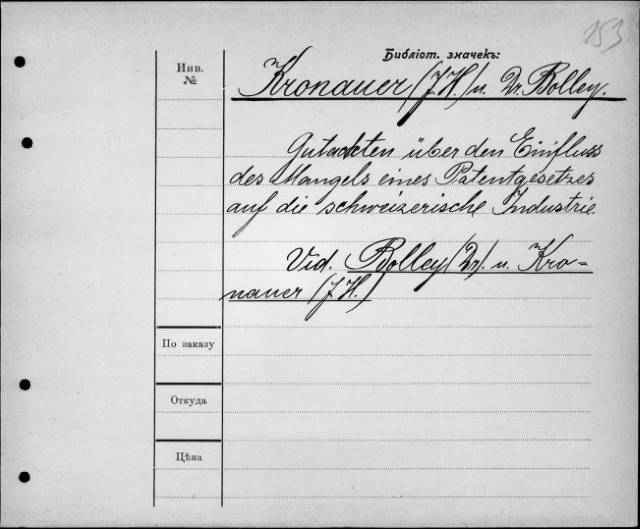 153
Библіот. значекъ:
Инв.
№
Kronauer (J. H.) u. Dr. Bolley.
Gutachten über den Einfluss
des Mangels eines Patentgesetzes
auf die schweizerische Industrie
Vid. Bolley (Dr). u. Kro-
nauer (J. H.)
По заказу
Откуда
Цѣна